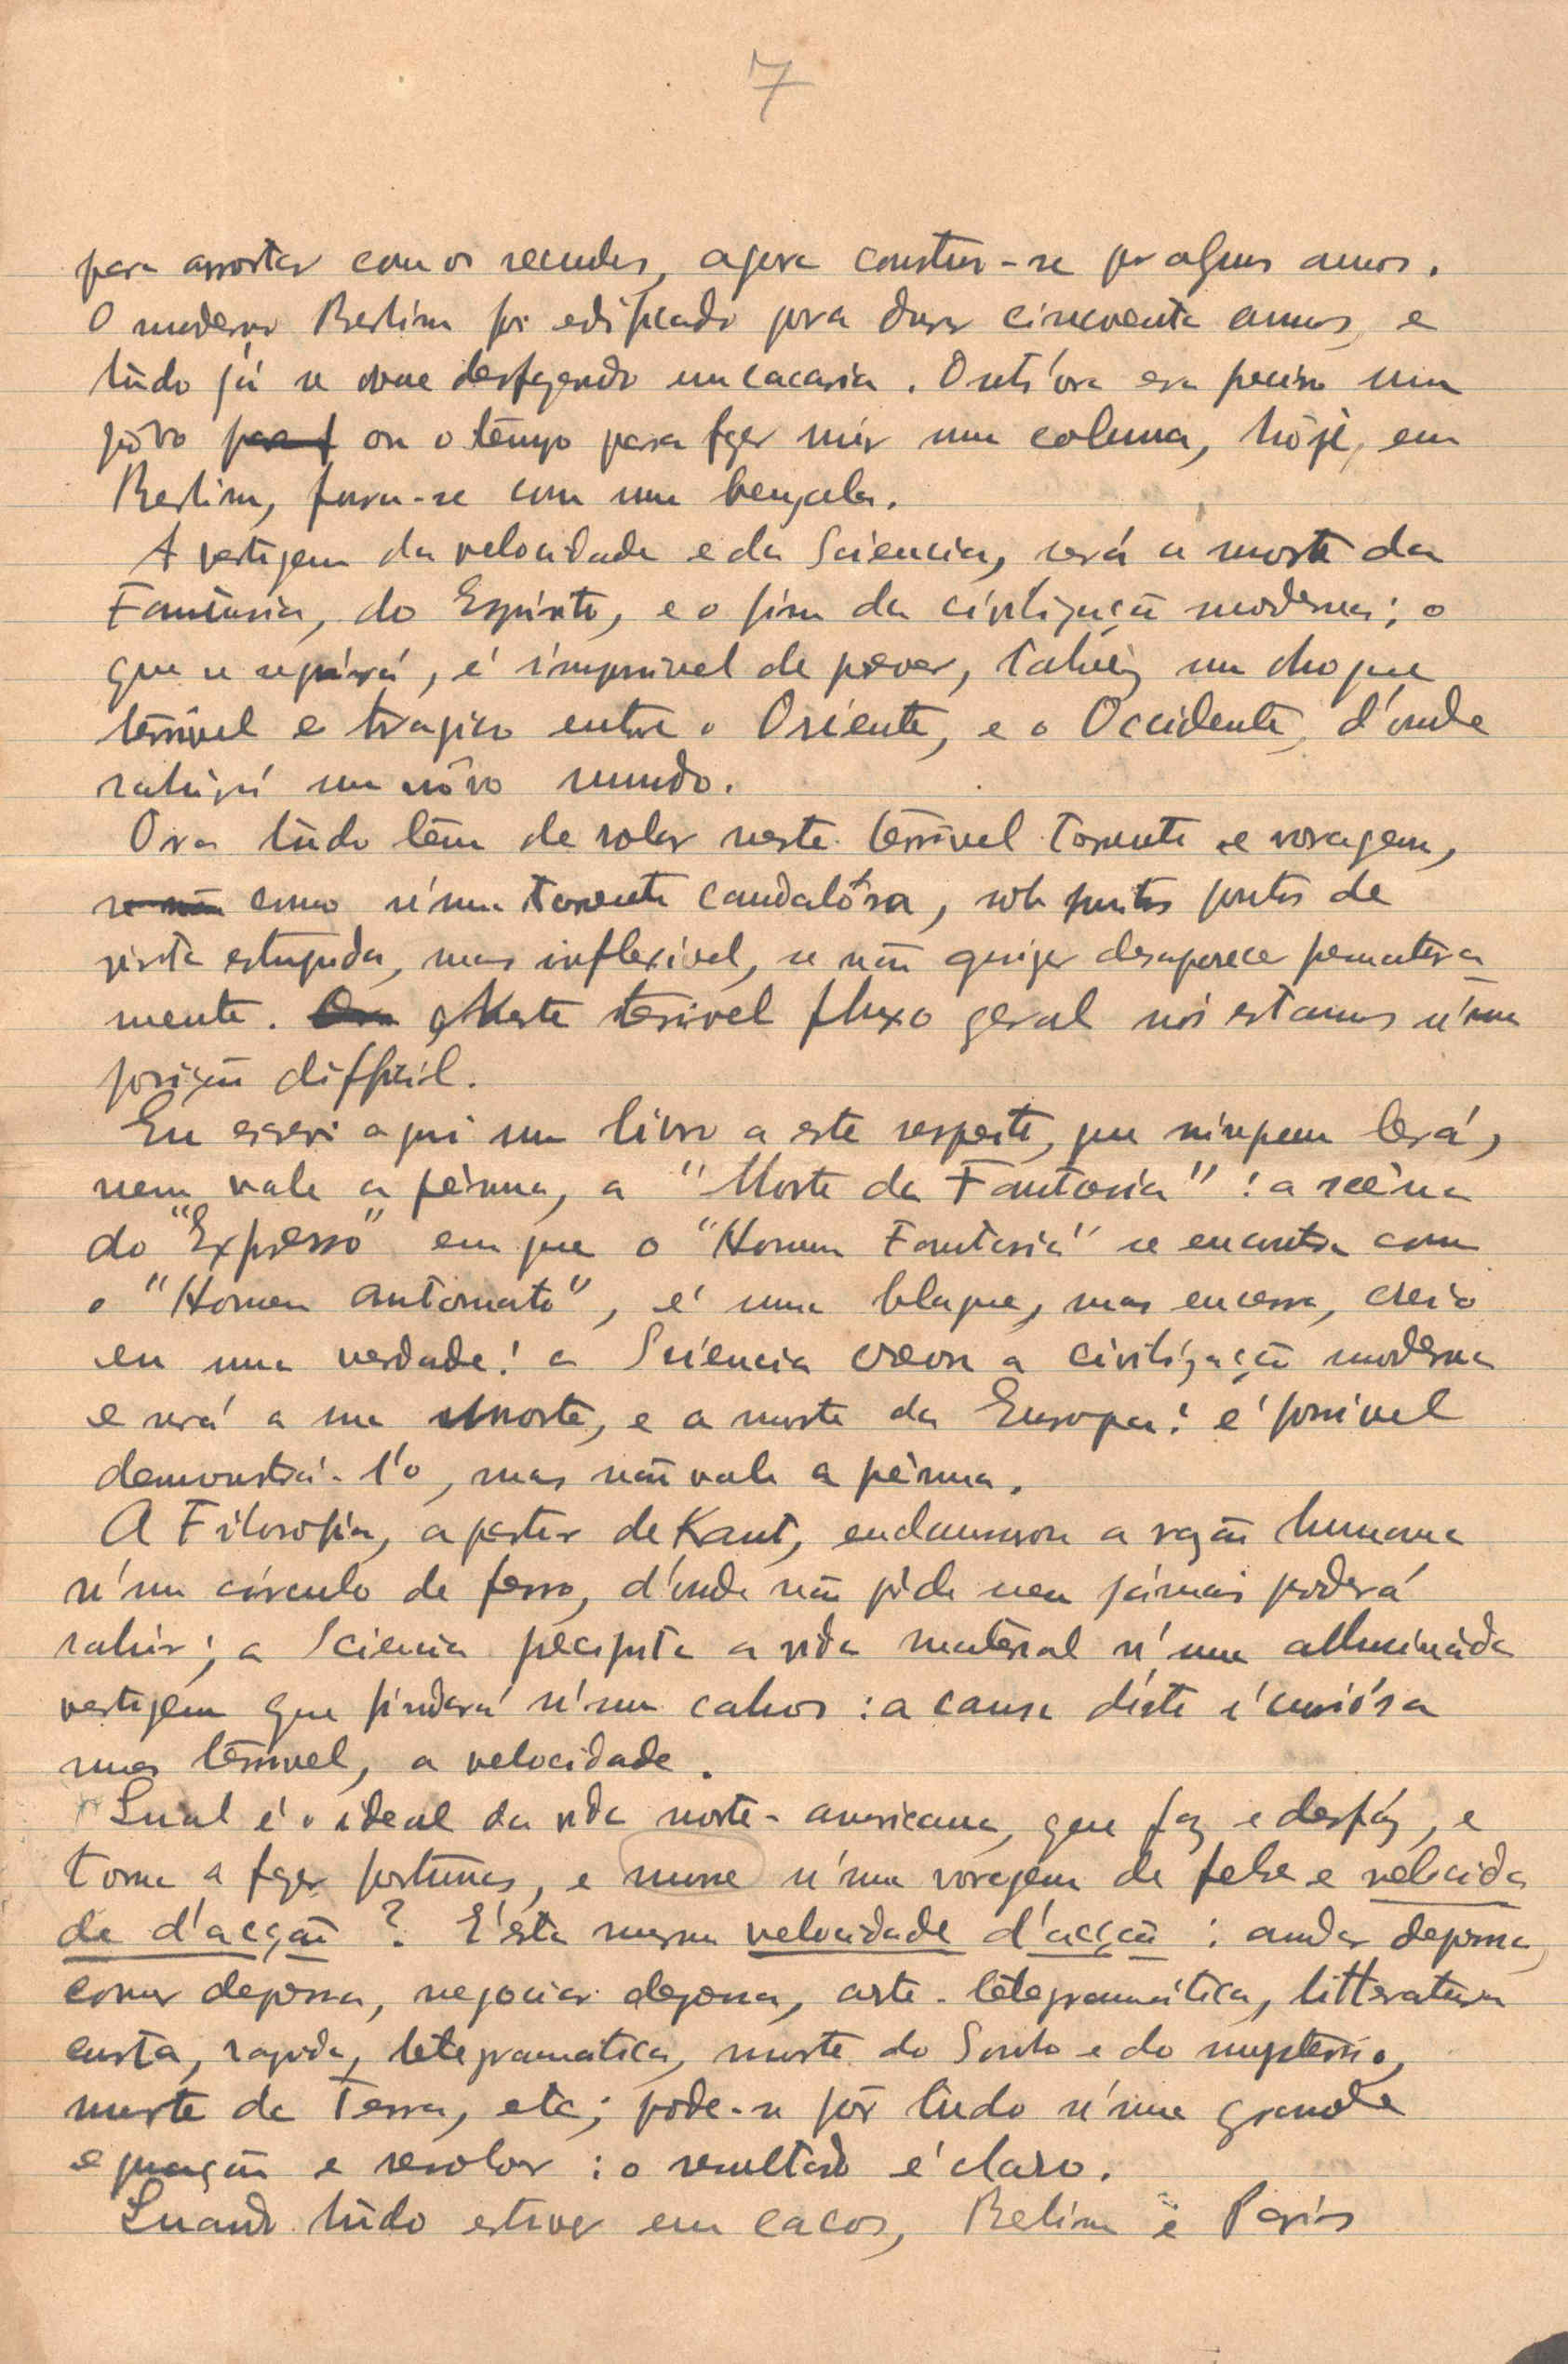 7
para arrostar com os seculos, agora constrœ-se por alguns annos.
O moderno Berlim foi edificado para durar cincoenta annos, e
tùdo já se vae desfazendo em cacaria. Outr'ora era preciso um
pôvo ou o tempo para fazer ruir uma coluna, hôje, em
Berlim, fura-se com uma bengala.
A vertigem da velocidade e da Sciencia, será a morte da
Fantasia, do Espirito, e o fim da civilização moderna; o
que se seguirá, é impossivel de prever, talvêz um choque
terrivel e tragico entre o Oriente, e o Occidente, d'onde
sahirá um nôvo mundo.
Ora tùdo têm de rolar neste terrivel torrente e voragem,
como n'uma torrente caudalósa, sob muitos pontos de
vista estupida, mas inflexivel, se não quizer desaparecer prematura-
mente. Neste terrivel fluxo geral nós estamos n'uma
posição difficil.
Eu escrevi aqui um livro a este respeito, que ninguem lerá,
nem vale a pènna, a "Morte da Fantasia": a scèna
do "Expresso" em que o "Homem Fantasia" se encontra com
o "Homem automato", é uma blague, mas encerra, creio
eu uma verdade: a Sciencia creou a civilização moderna
e será a sua morte, e a morte da Europa: é possivel
demonstrá-l'o, mas não vale a pènna.
A Filosofia, a partir de Kant, enclausurou a razão humana
n'um circulo de ferro, d'onde não póde nem jámais poderá
sahir; a Sciencia precipita a vida material n'uma allucinàda
vertigem que findará n'um cahos: a causa disto é curiósa
mas terrivel, a velocidade.
Qual é o ideal da vida norte-americana, que faz e desfáz, e
torna a fazer fortunas, e morre n'uma voragem de febre e velocida
de d'acção? E' esta mesma velocidade d'acção: andar depressa,
comer depressa, negociar depressa, arte telegramática, litteratura
curta, rapida, telegramatica, morte do Sonho e do mysterio,
morte da Terra, etc; pode-se pôr tùdo n'uma grande
equação e resolver: o resultado é claro.
Quando tùdo estiver em cacos, Berlim e Paris